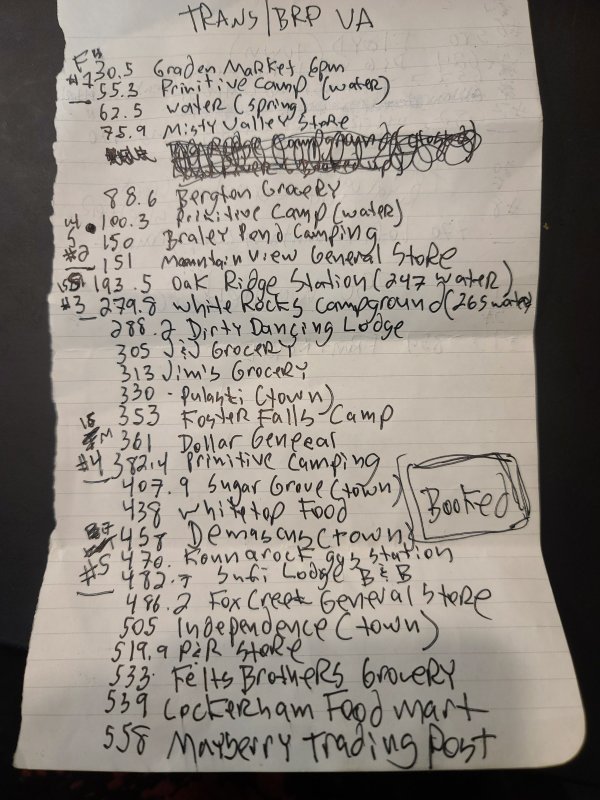 TRANS/BRP VA
F
#1 30.5 Graden Market 6pm
55.3 Prinitive Camp (water)
62.5 water (spring)
75.9 Misty Valley Store
88.6 Bergton Grocery
100.3 Primitive Camp (water)
150 Braley Pond Camping
#2 151 Mountain View General Store
193.5 Oak Ridge Station (247 water)
#3 279.8 White Rocks Campground (265 water)
288.2 Dirty Dancing Lodge
305 JiJ Grocery
313 Jim's Grocery
330 - Pulaski (town)
353 Foster Falls Camp
361 Dollar General
#4 382.4 Primitive Camping
407.9 Sugar Grove (town)
Booked
438 Whitetop Food
458 Demascus (town)
470. Konnarock gas station
#5 482.7 Sufi Lodge B & B
486.2 Fox Creek General Store
505 Independence (town)
519.9 P&R Store
533 Felts Brothers Grocery
539 Lockerham Food mart
558 Mayberry Trading Post